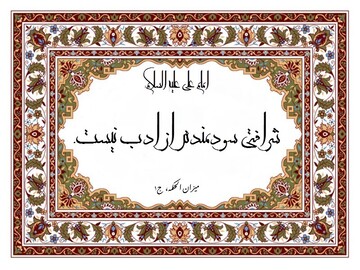 امام علی علیه السلام
شرافتی سودمندتر از ادب نیست.
میزان الحکمه، ج۱